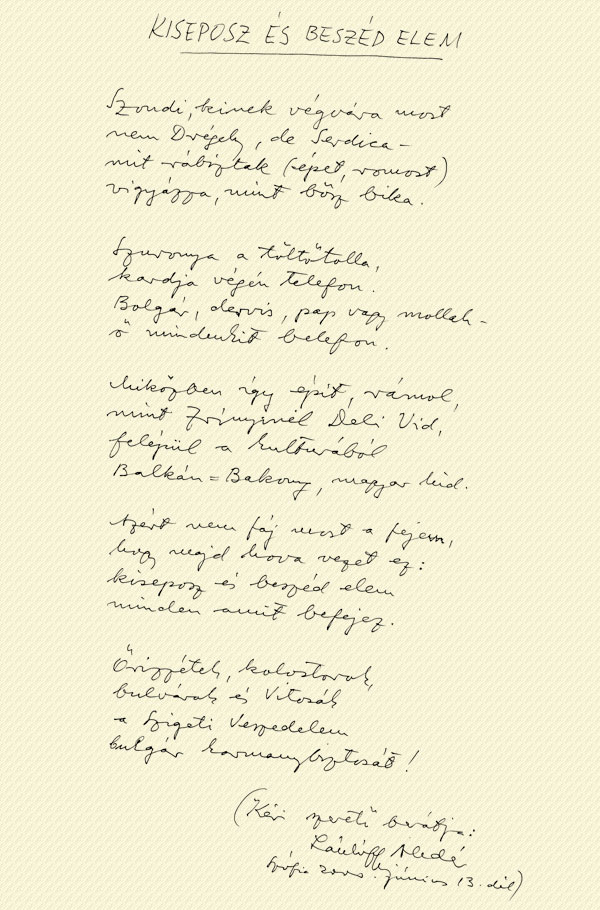 KISEPOSZ ÉS BESZÉD ELEM
Szondi, kinek végvára most
nem Drégely, de Serdica –
mit rábíztak (épet, romost)
vigyázza, mint bősz bika.
Szuronya a töltőtolla,
kardja végén telefon.
Bolgár, dervis, pap vagy mollah –
ő mindenkit belefon.
Miközben így épít, rámol,
mint Zrínyinél Deli Vid,
felépül a kultúrából
Balkán = Bakony, magyar híd.
Azért nem fáj most a fejem,
hogy majd hova vezet ez:
kiseposz és beszéd elem
minden amit befejez.
Őrizzétek, kolostorok,
bulvárok és Vitosák
a Szigeti Veszedelem
bulgár kormánybiztosát!
(Kéri szerető barátja:
Lászlóffy Aladár
Szófia 2000. június 13. dél)